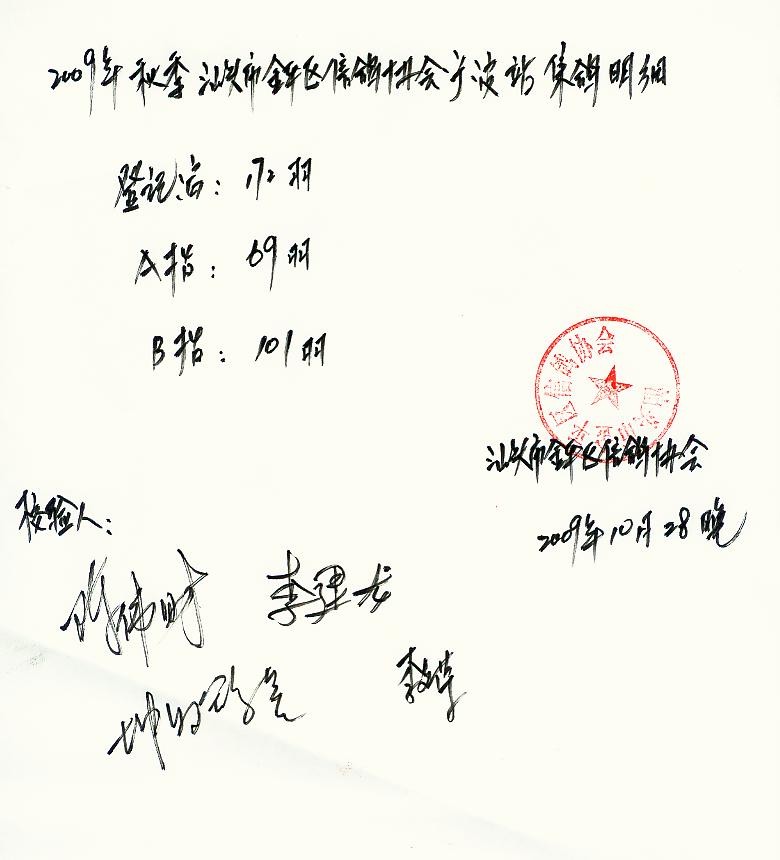 2009年秋季汕头市金平区信鸽协会宁波站集鸽明细
登记鸽：172羽
A指：69羽
B指：101羽
汕头市金平区信鸽协会
汕头市金平区信鸽协会
2009年10月28晚
校验人：
李建龙